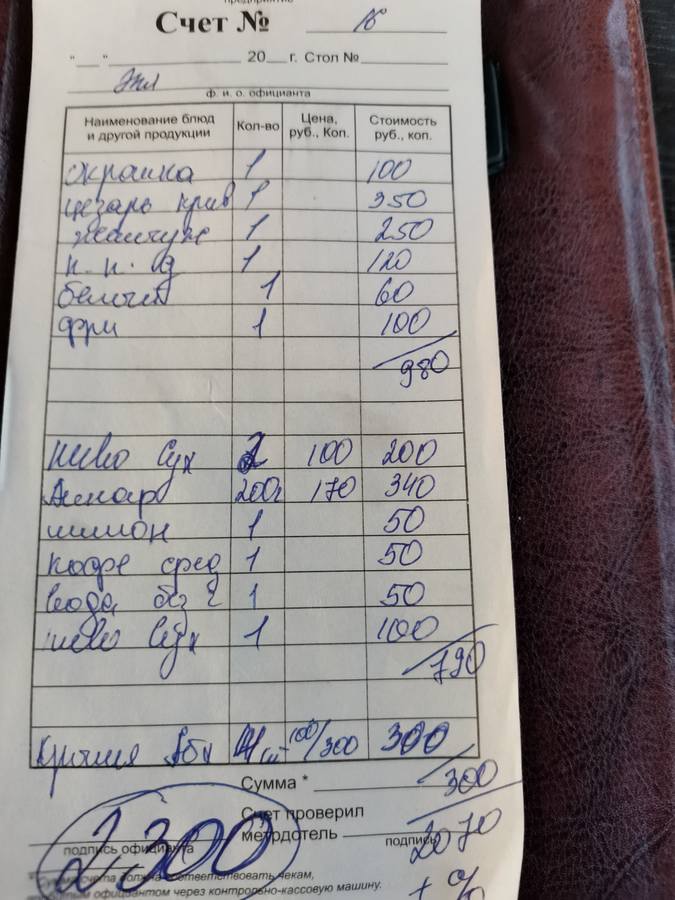 предприятие
Счет № 16
"__" 20__ г. Стол №
ф. и. о. официанта
Наименование блюд и другой продукции Кол-во Цена, руб., Коп. Стоимость руб., коп.
окрошка 1 100
цезарь крив 1 350
жемчуже 1 250
1 120
белый 1 60
фри 1 100
980
пиво Сух 2 100 200
200г 170 340
лимон 1 50
кофе сред 1 50
вода без г 1 50
пиво Сух 1 100
790
300 300
Сумма * 300
Счет проверил
метрдотель
подпись официанта подпись
2070
2300
* Сумма счета должна соответствовать чекам,
официантом через контрольно-кассовую машину.
+ %